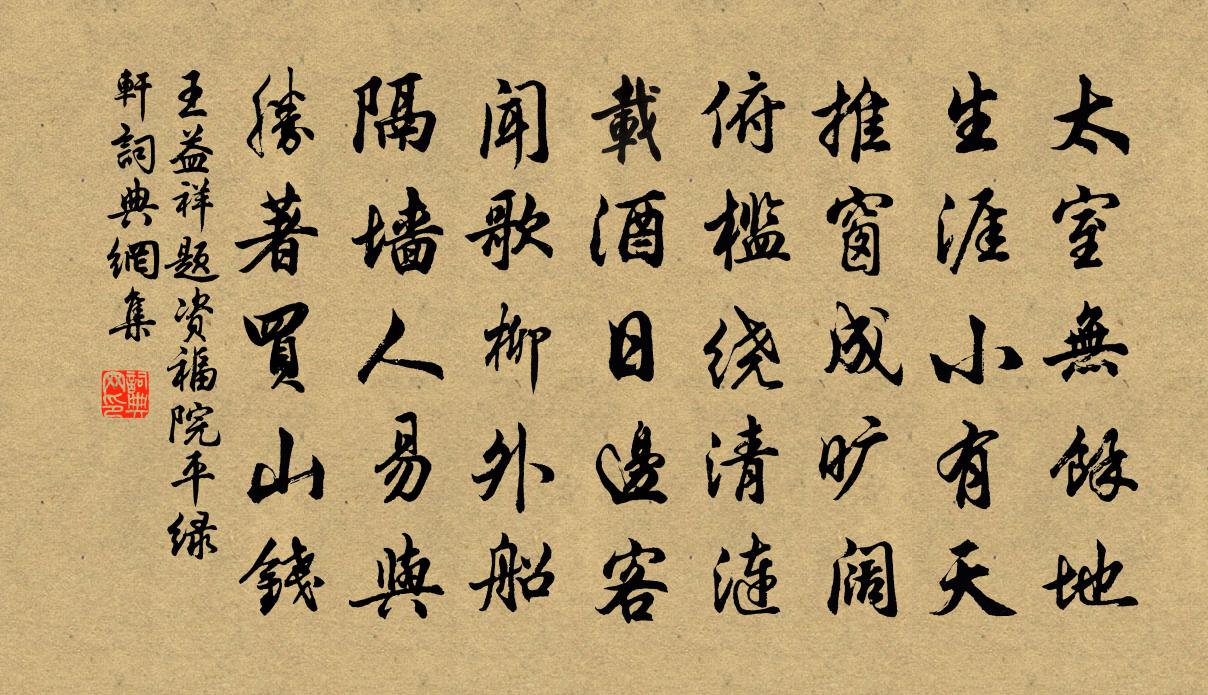 太室無餘地
生涯小有天
推窗成旷阔
俯槛绕清涟
載酒日邊客
闻歌柳外船
隔墙人易與
勝著買山錢
王益祥题资福院平绿
軒詞典網集
詞典網印